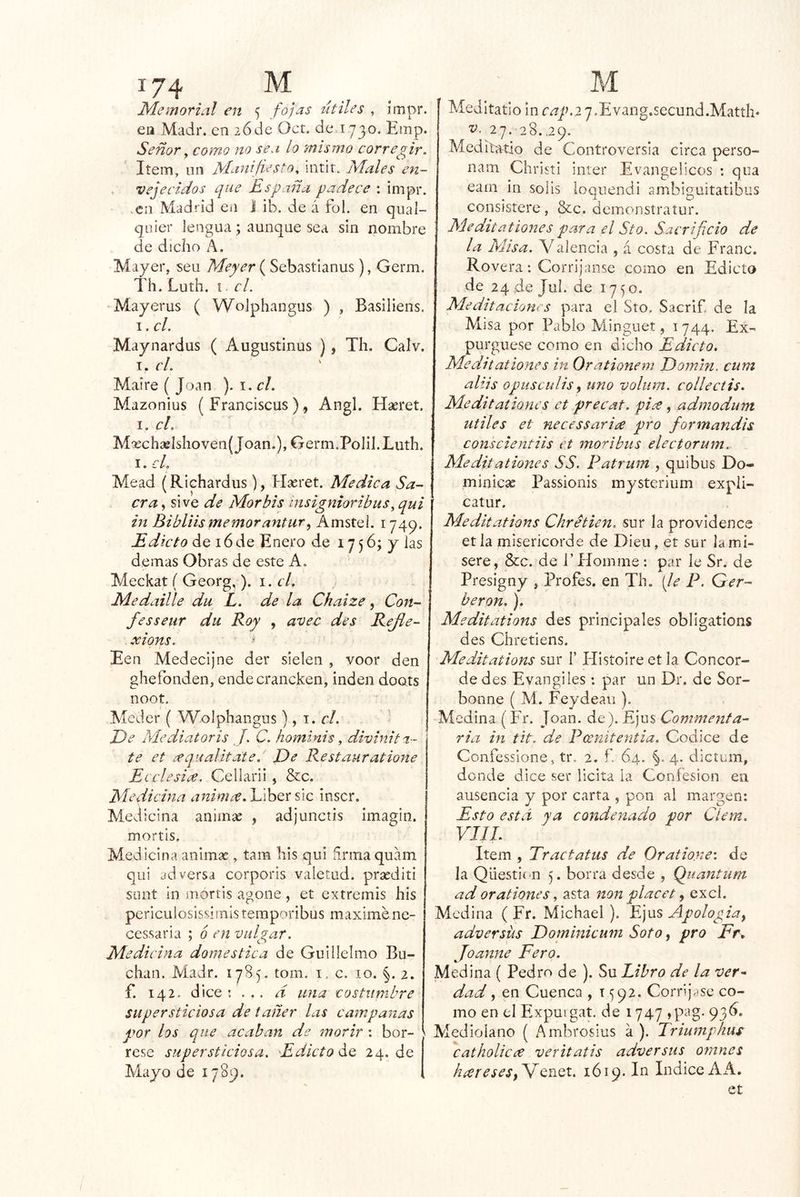 174 M
Memorial en 5 fojas útiles, impr.
en Madr. en 26 de Oct. de 1730. Emp.
Señor, como no sea lo mismo corregir.
Item, un Manifiesto, intit. Males en-
vejecidos que España padece : impr.
en Madrid en 1 lib. de á fol. en qual-
quier lengua; aunque sea sin nombre
de dicho A.
Mayer, seu Meyer ( Sebastianus ), Germ.
Th. Luth. 1. cl.
Mayerus ( Wolphangus ) , Basiliens.
1. cl.
Maynardus ( Augustinus ) , Th. Calv.
1. cl.
Maire ( Joan ). 1. cl.
Mazonius ( Franciscus ), Angl. Hæret.
1. cl.
Mœchælshoven(Joan.), Germ.Polil.Luth.
1. cl.
Mead (Richardus ), Hæret. Medica Sa-
cra, sive de Morbis insignioribus, qui
in Bibliis memorantur, Amstel. 1749.
Edicto de 16 de Enero de 1756; y las
demas Obras de este A.
Meckat ( Georg, ). 1. cl.
Medaille du L. de la Chaize, Con-
fesseur du Roy , avec des Refle-
xions.
Een Medecijne der sielen , voor den
ghesonden, ende crancken, inden doots
noot.
Meder ( Wolphangus ) , 1. cl.
De Mediatoris J. C. hominis, divinita-
te et æqualitate. De Restauratione
Ecclesiæ. Cellarii , &c.
Medicina animæ. Liber sic inscr.
Medicina animæ , adjunctis imagin.
mortis.
Medicina animæ , tam his qui firma quàm
qui adversa corporis valetud. præditi
sunt in mortis agone , et extremis his
periculosissimis temporibus maximè ne-
cessaria ; ó en vulgar.
Medicina domestica de Guillelmo Bu-
chan. Madr. 1785. tom. 1. c. 10. §. 2.
f. 142. dice : ... á una costumbre
supersticiosa de tañer las campanas
por los que acaban de morir : bor-
rese supersticiosa. Edicto de 24. de
Mayo de 1789.
M
Meditatio in cap.27.Evang.secund.Matth.
v. 27. 28. 29.
Meditatio de Controversia circa perso-
nam Christi inter Evangelicos : qua
eam in solis loquendi ambiguitatibus
consistere, &c. demonstratur.
Meditationes para el Sto. Sacrificio de
la Misa. Valencia , á costa de Franc.
Rovera : Corrijanse como en Edicto
de 24 de Jul. de 1750.
Meditaciones para el Sto. Sacrif. de la
Misa por Pablo Minguet, 1744. Ex-
purguese como en dicho Edicto.
Meditationes in Orationem Domin. cum
aliis opusculis, uno volum. collectis.
Meditationes et precat. piæ, admodum
utiles et necessariæ pro formandis
conscientiis et moribus electorum.
Meditationes SS. Patrum , quibus Do-
minicæ Passionis mysterium expli-
catur.
Meditations Chrêtien. sur la providence
et la misericorde de Dieu, et sur la mi-
sere, &c. de l'Homme : par le Sr. de
Presigny , Profes. en Th. (le P. Ger-
beron. ).
Meditations des principales obligations
des Chretiens.
Meditations sur l' Histoire et la Concor-
de des Evangiles : par un Dr. de Sor-
bonne ( M. Feydeau ).
Medina (Fr. Joan. de). Ejus Commenta-
ria in tit. de Pœnitentia. Codice de
Confessione, tr. 2. f. 64. §. 4. dictum,
donde dice ser licita la Confesion en
ausencia y por carta , pon al margen:
Esto está ya condenado por Clem.
VIII.
Item , Tractatus de Oratione: de
la Qüestion 5. borra desde , Quantum
ad orationes, asta non placet, excl.
Medina ( Fr. Michael ). Ejus Apologia,
adversùs Dominicum Soto, pro Fr.
Joanne Fero.
Medina ( Pedro de ). Su Libro de la ver-
dad , en Cuenca , 1592. Corrijase co-
mo en el Expurgat. de 1747, pag. 936.
Mediolano ( Ambrosius à ). Triumphus
catholicæ veritatis adversus omnes
hæreses, Venet. 1619. In Indice AA.
et